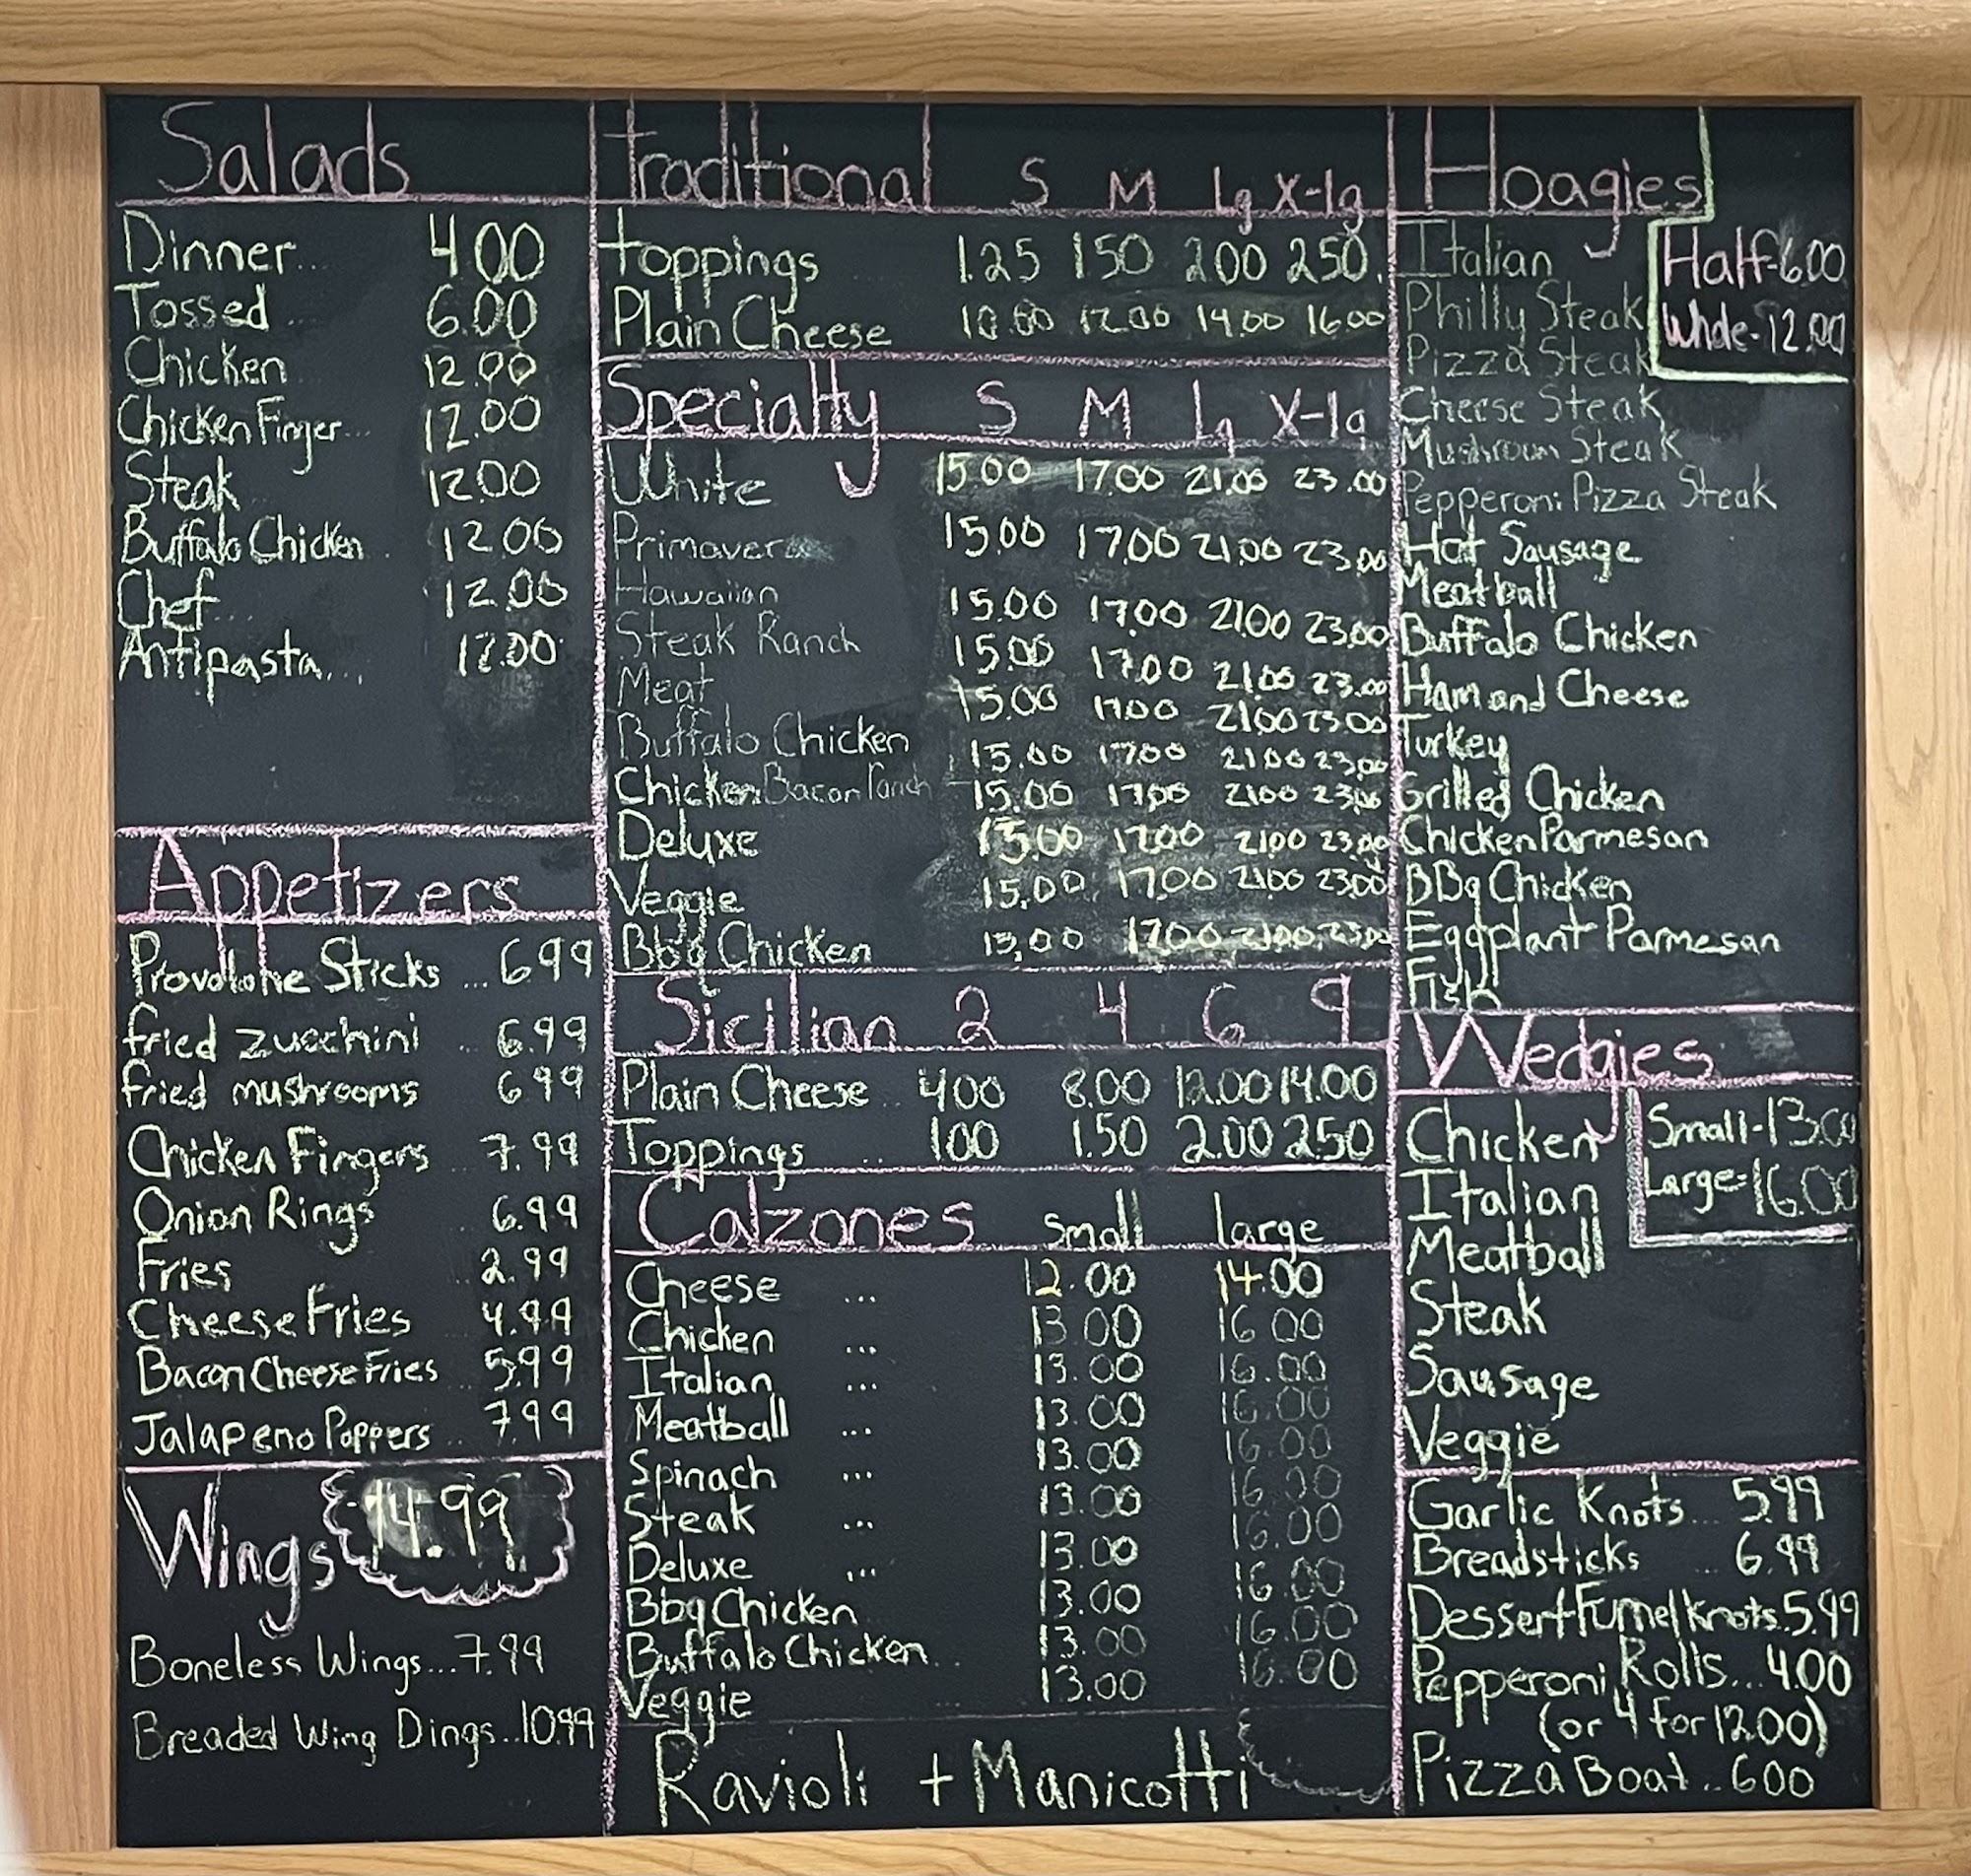 Salads
Dinner... 4.00
Tossed... 6.00
Chicken 12.00
Chicken Finger... 12.00
Steak 12.00
Buffalo Chicken.. 12.00
Chef... 12.00
Antipasta... 12.00
Appetizers
Provolone Sticks ... 6.99
fried zucchini .. 6.99
fried mushrooms 6.99
Chicken Fingers .. 7.99
Onion Rings 6.99
Fries .. 2.99
Cheese Fries .. 4.99
Bacon Cheese Fries ... 5.99
Jalapeno Poppers .. 7.99
Wings 14.99
Boneless Wings...7.99
Breaded Wing Dings..10.99
Traditional S M Lg X-lg
toppings 1.25 1.50 2.00 2.50
Plain Cheese 10.00 12.00 14.00 16.00
Specialty S M Lg X-lg
White 15.00 17.00 21.00 23.00
Primavera 15.00 17.00 21.00 23.00
Hawaiian 15.00 17.00 21.00 23.00
Steak Ranch 15.00 17.00 21.00 23.00
Meat 15.00 17.00 21.00 23.00
Buffalo Chicken 15.00 17.00 21.00 23.00
Chicken Bacon Ranch 15.00 17.00 21.00 23.00
Deluxe 15.00 17.00 21.00 23.00
Veggie 15.00 17.00 21.00 23.00
Bbq Chicken 15.00 17.00 21.00 23.00
Sicilian 2 4 6 9
Plain Cheese .. 4.00 8.00 12.00 14.00
Toppings .. 1.00 1.50 2.00 2.50
Calzones small large
Cheese ... 12.00 14.00
Chicken ... 13.00 16.00
Italian ... 13.00 16.00
Meatball ... 13.00 16.00
Spinach ... 13.00 16.00
Steak ... 13.00 16.00
Deluxe ... 13.00 16.00
Bbq Chicken 13.00 16.00
Buffalo Chicken... 13.00 16.00
Veggie ... 13.00 16.00
Ravioli + Manicotti
Hoagies
Half-6.00
Whole-12.00
Italian
Philly Steak
Pizza Steak
Cheese Steak
Mushroom Steak
Pepperoni Pizza Steak
Hot Sausage
Meatball
Buffalo Chicken
Ham and Cheese
Turkey
Grilled Chicken
Chicken Parmesan
BBq Chicken
Eggplant Parmesan
Fish
Wedgies
Small-13.00
Large-16.00
Chicken
Italian
Meatball
Steak
Sausage
Veggie
Garlic Knots... 5.99
Breadsticks .. 6.99
Dessert Funnel Knots.5.99
Pepperoni Rolls... 4.00
(or 4 for 12.00)
Pizza Boat..6.00